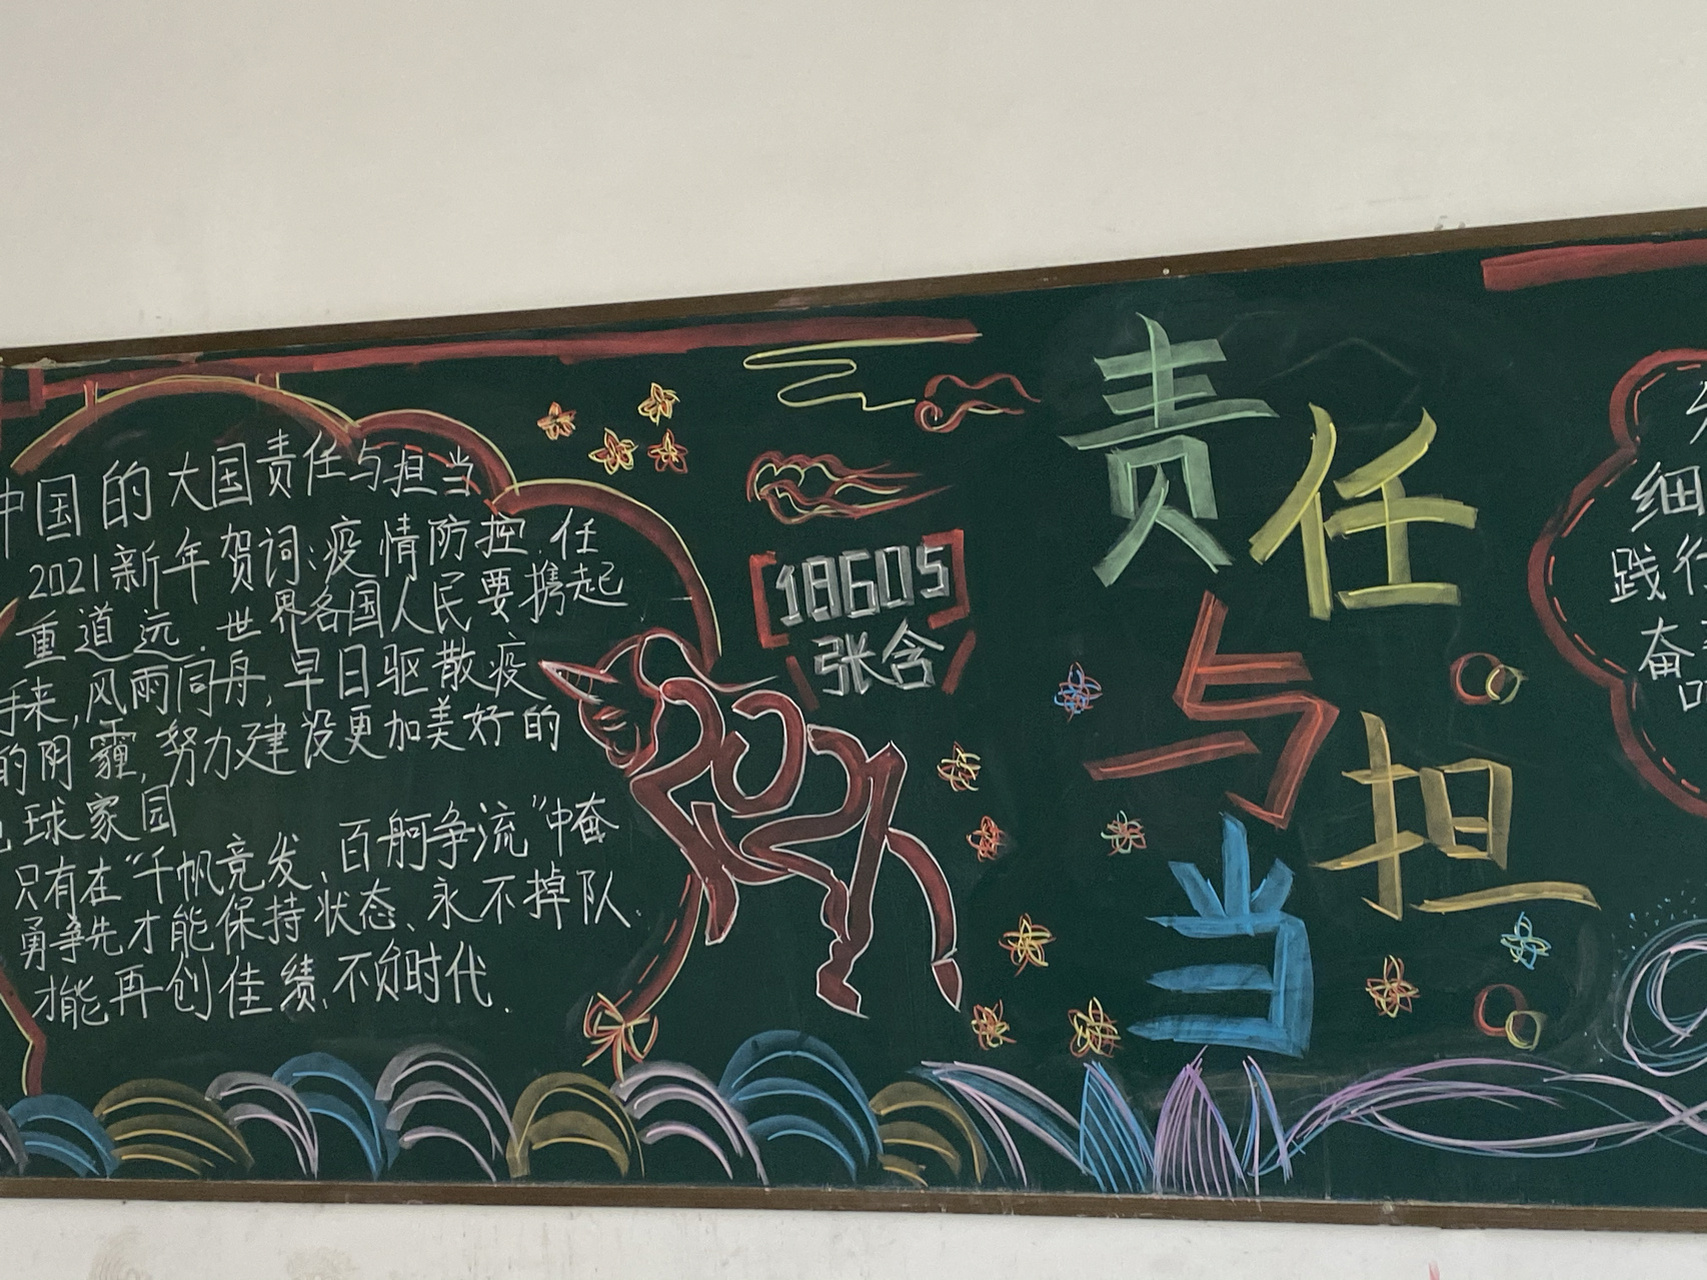 中国的大国责任与担当
2021新年贺词:疫情防控,任
重道远.世界各国人民要携起
手来,风雨同舟,早日驱散疫
的阴霾,努力建设更加美好的
球家园
只有在"千帆竞发,百舸争流"中奋
勇争先才能保持状态、永不掉队.
才能再创佳绩,不负时代.
18605
张含
责任
与担
当
细
践行
奋